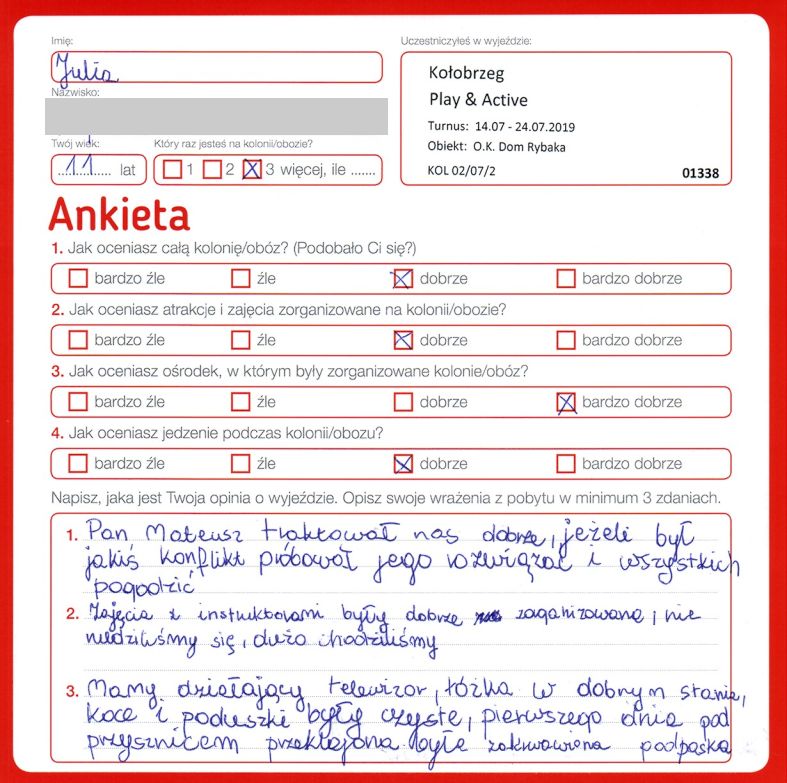 Imię:
Julia
Uczestniczyłeś w wyjeździe:
Kołobrzeg
Play & Active
Turnus: 14.07 - 24.07.2019
Obiekt: O.K. Dom Rybaka
KOL 02/07/2
01338
Nazwisko:
Twój wiek:
11 lat
Który raz jesteś na kolonii/obozie?
1 2 3 więcej, ile .......
Ankieta
1. Jak oceniasz całą kolonię/obóz? (Podobało Ci się?)
bardzo źle źle dobrze bardzo dobrze
2. Jak oceniasz atrakcje i zajęcia zorganizowane na kolonii/obozie?
bardzo źle źle dobrze bardzo dobrze
3. Jak oceniasz ośrodek, w którym były zorganizowane kolonie/obóz?
bardzo źle źle dobrze bardzo dobrze
4. Jak oceniasz jedzenie podczas kolonii/obozu?
bardzo źle źle dobrze bardzo dobrze
Napisz, jaka jest Twoja opinia o wyjeździe. Opisz swoje wrażenia z pobytu w minimum 3 zdaniach.
1. Pan Mateusz traktował nas dobrze, jeżeli był
jakiś konflikt próbował jego rozwiązać i wszystkich
pogodzić
2. Zajęcia z instruktorami były dobrze zaganizowane, nie
nudziliśmy się, dużo chodziliśmy
3. Mamy działający telewizor, łóżka w dobrym stanie,
koce i poduszki były czyste, pierwszego dnia pod
przysznicem przeklejona była zakrwawiona podpaska